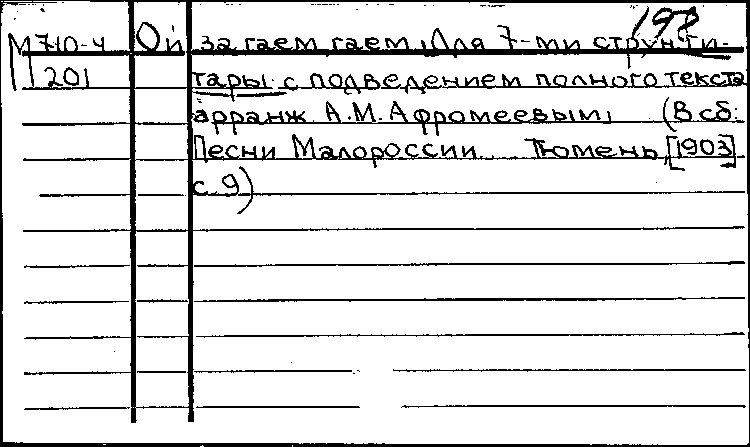 198
М 710-4 Ой за гаем, гаем. Для 7-ми струн. ги-
П 201 тары с подведением полного текста
арранж А.М. Афромеевым, (В сб:
Песни Малороссии Тюмень, [1903]
с. 9)